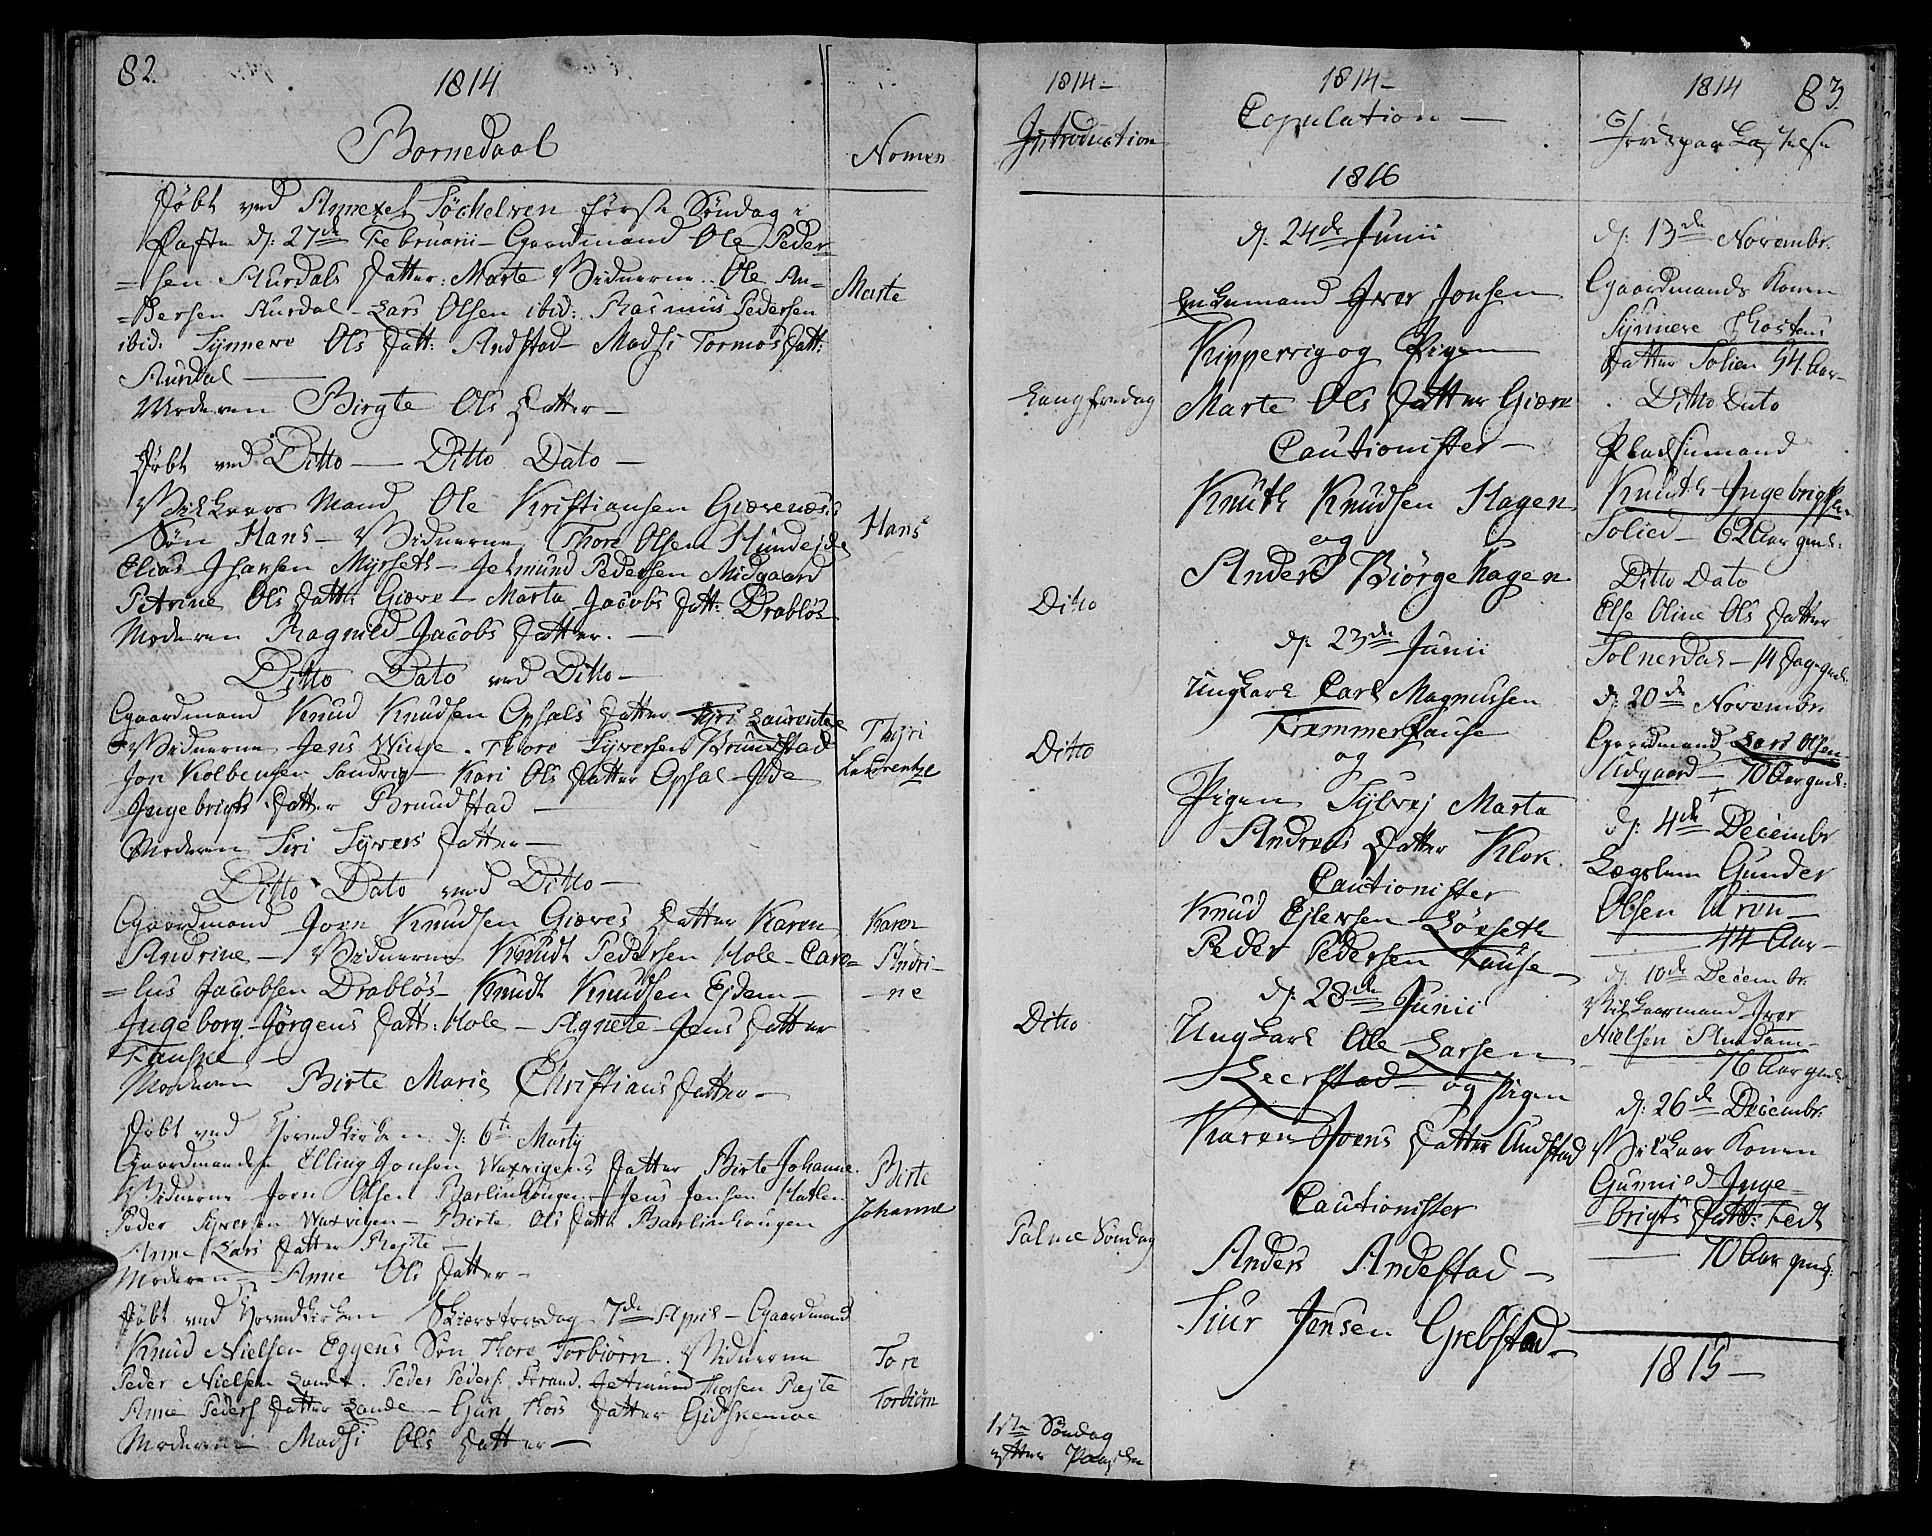 82.
1814
Barnedaab
Nomen
Døbt ved Annexet Söchelven første Söndag i
Faste d: 27de Februarii - Gaardmand Ole Peder
=sen Aurdals Datter: Marte Vidnerne Ole An=
=dersen Aurdal - Lars Olsen ibid: Rasmus Pedersen
ibid: Synnere Ols Datt: Andstad Madsi Tormos Datt:
Aurdal
Moderen Birgte Ols Datter -
Marte
Døbt ved Ditto - Ditto Dato -
Vilkaars Mand Ole Kristiansen Giærenæs
Søn Hans - Vidnerne Thore Olsen Hundejde
Elias Johansen Myrseth - Jetmund Pedersen Midgaard
Petrine Ols Datt: Giære - Marta Jacobs Datt: Drabløs
Moderen Ragnild Jacobs Datter. -
Hans
Ditto Dato ved Ditto -
Gaardmand Knud Knudsen Opsals Datter Thyri Laurentze
Vidnerne Jens Winje. Thore Syversen Brundstad
Jon Kolbensen Sandvig - Kari Ols Datter Opsal - Ide
Ingebrigts Datter Brundstad -
Moderen Siri Syvers Datter -
Thyri
Laurentze
Ditto Dato ved Ditto -
Gaardmand Joen Knudsen Giæres Datter Karen
Andrine - Vidnerne Knudt Pedersen Hole - Care=
=lus Jacobsen Drabløs - Knudt Knudsen Ejdem -
Ingeborg Jørgens Datt: Hole - Agnete Jens Datter
Fauske -
Moderen Birte Marie Christians Datter -
Karen
Andri-
-ne
Døbt ved Hovedkirken d: 6te Marty
Gaardmanden Elling Jonsen Waxvigens Datter Birte Johanne.
Vidnerne Joen Olsen Barlinhougen - Jens Jensen Hatlen
Peder Syversen Waxvigen - Birte Ols Datt: Barlinhougen
Anne Lars Datter Røjte -
Moderen - Anne Ols Datter -
Birte
Johanne
Døbt ved Hovedkirken Skiærstorsdag 7de April - Gaardmand
Knud Nielsen Eggens Søn Thore Torbiørn. Vidnerne
Peder Nielsen Lande. Peder Peders: Strand. Jetmund Thorsen Røjte
Anne Peders Datter Lande - Guri Thors Datter Gidskemoe
Moderen Madsi Ols Datter -
Tore
Torbiörn
1814 -
Introduction
Langfredag
Ditto
Ditto
Ditto
Palme Söndag
1ste Søndag
efter Paaske
1814 -
Copulation -
1816
d: 24de Junii
Enkemand Iver Jonsen
Kippervig og Pigen
Marte Ols Datter Giære
Cautionister -
Knuth Knudsen Hagen
og
Anders Biörge Hagen
d: 23de Junii
Ungkarl Carl Magnussen
Kremmerhause
og
Pigen Sylvej Marta
Andreas Datter Klok
Cautionister
Knud Ejlersen Lørseth
Peder Pedersen Fause -
d: 28de Junii
Ungkarl Ole Larsen
Leerstad - og Pigen
Karen Joens Datter Andstad
Cautionister
Anders Andestad -
Siur Jensen Grebstad -
1814 83.
Jordspaakastelse
d: 13de Novembr.
Gaardmands Konen
Synnere Thostens
Datter Solien 54. Aar -
Ditto Dato
Pladsemand
Knuth Ingebrigtsen
Solied - 62 Aar gml:
Ditto Dato
Else Oline Ols Datter
Tolnerdas - 14 Dage gml:
d: 20de Novembr.
Gaardmand Lars Olsen
Udgaard - 70 Aar gml:
d: 4de Decembr
Lægslem Gunder
Olsen Uren -
44 Aar -
d: 10de Decembr.
Vilkaarmand Iver
Nielsen Amdam -
76 Aar gml:
d: 26de Decembr.
Vilkaar Konen
Gunnild Inge=
=brigts Datt: Fedt
70 Aar gml:
1815 -